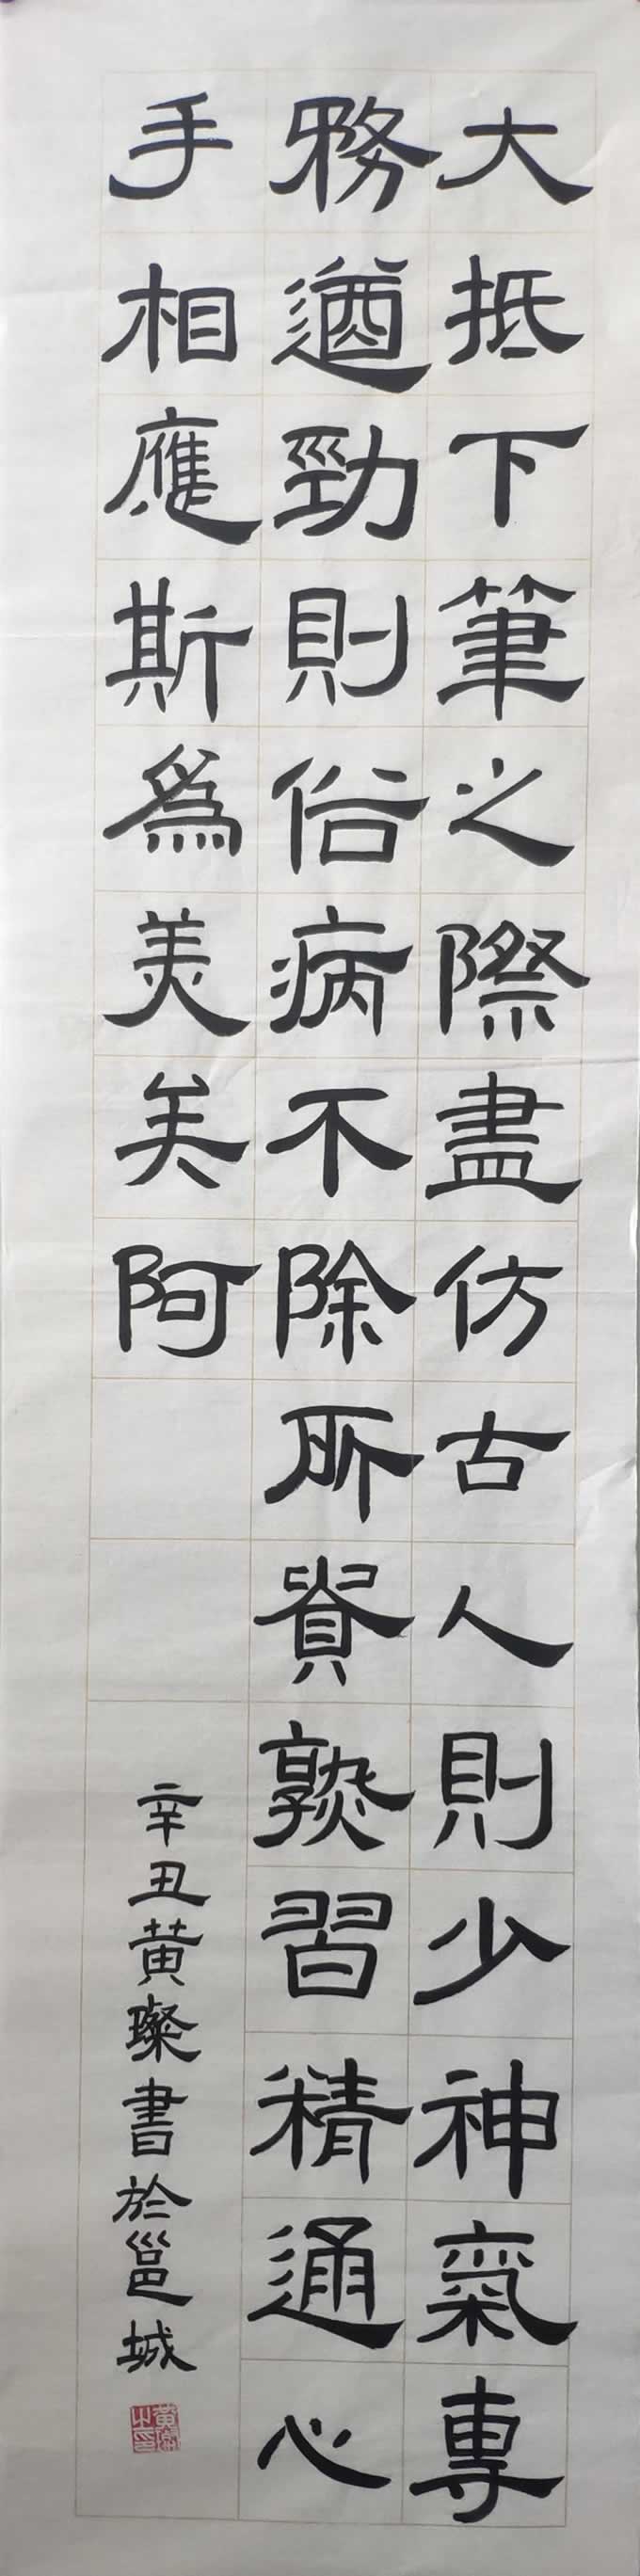 大抵下筆之際盡仿古人則少神氣專
務遒勁則俗病不除所貴熟習精通心
手相應斯為美美阿
辛丑黃璨書於邕城